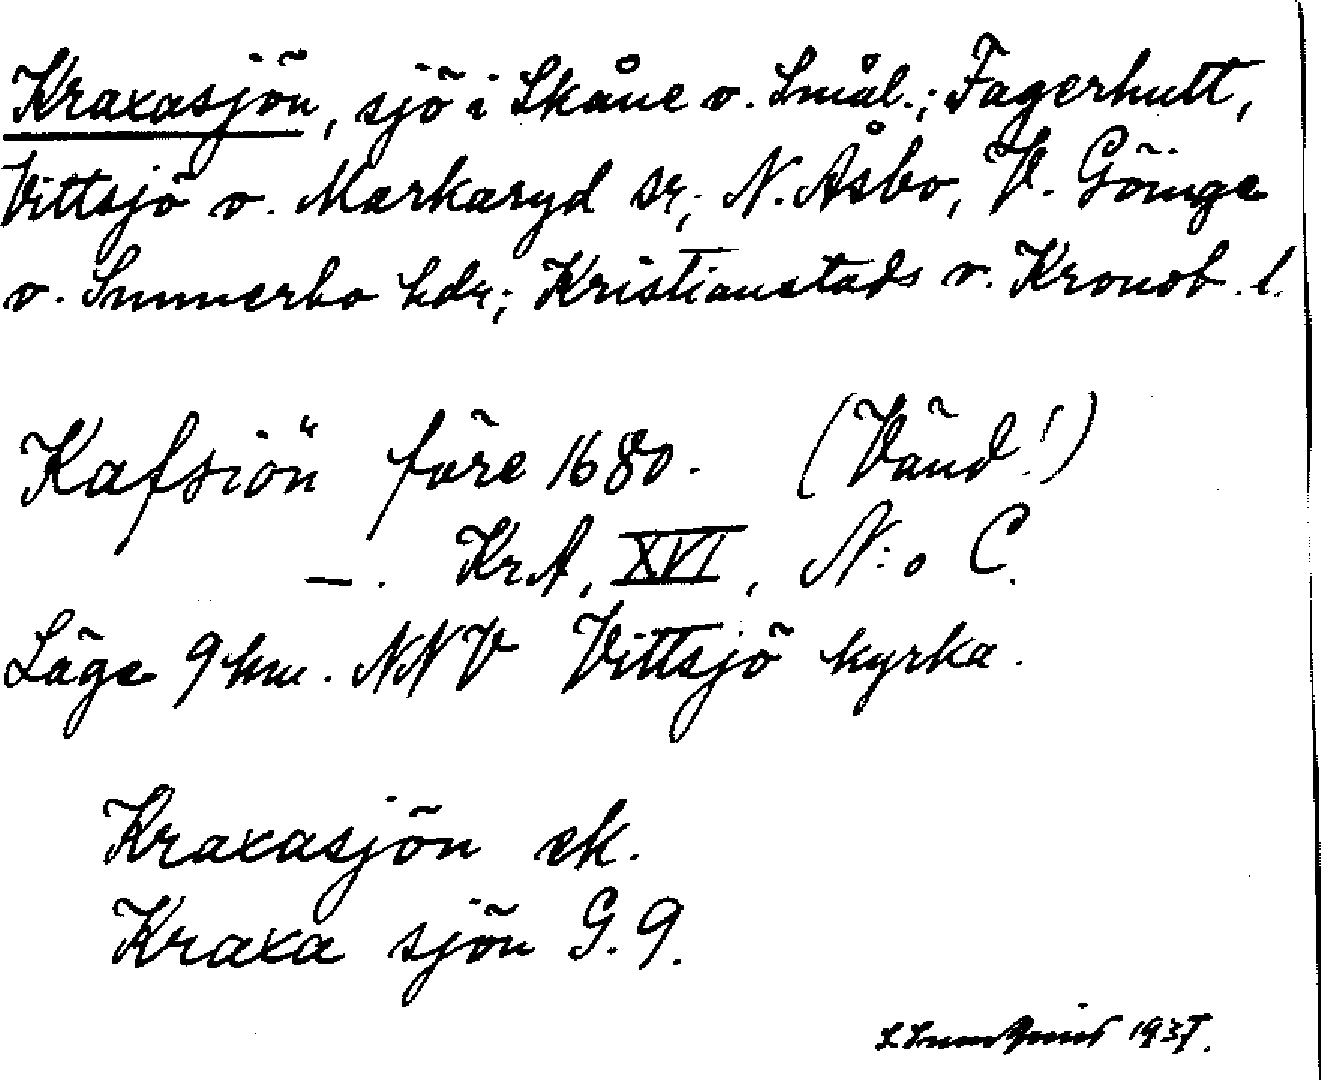 Kraxasjön, sjö i Skåne o. Smål.; Fagerhult,
Vittsjö o. Markaryd sr; N. Åsbo, V. Göinge
o. Sunnerbo hdr; Kristianstads o. Kronob. l.
Kafsiön före 1680. (Vänd!)
—. KrA, XVI, N:o C.
Läge 9 km. NNV Vittsjö kyrka.
Kraxasjön ek.
Kraxa sjön G. 9.
1937.